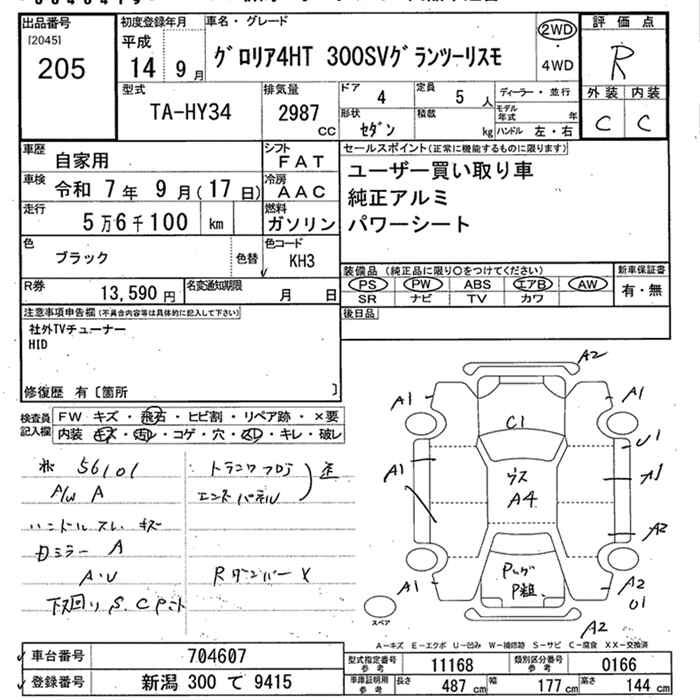 出品番号
[2045]
205
初度登録年月
平成
14 9月
車名・グレード
グロリア4HT 300SVグランツーリスモ
2WD
・
4WD
評価点
R
外装 内装
C C
型式
TA-HY34
排気量
2987
cc
ドア 4
定員 5 人
ディーラー・並行
形状 セダン
積載 kg
モデル年式 年
ハンドル 左・右
車歴 自家用
シフト FAT
車検 令和 7年 9月(17日)
冷房 AAC
走行 5万6千100 km
燃料 ガソリン
色 ブラック
色替
色コード
KH3
R券 13,590円
名変通知期限 月 日
セールスポイント(正常に機能するものに限ります)
ユーザー買い取り車
純正アルミ
パワーシート
装備品(純正品に限り〇をつけてください)
PS PW ABS エアB AW
SR ナビ TV カワ
新車保証書
有・無
後日品
注意事項申告欄(不具合内容等は具体的に記入して下さい)
社外TVチューナー
HID
修復歴 有〔箇所 〕
検査員記入欄
FW キズ・飛石・ヒビ割・リペア跡・×要
内装 キズ・汚レ・コゲ・穴・スレ・キレ・破レ
56101
A/W A
ハンドルスレ キズ
Dミラー A
A・U
下廻り S. C
トランクフロア
エンドパネル
Rダンパー X
A2
A1
A1
C1
U1
A1
A1
ウス
A4
A2
A1
A2
U1
A2
スペア
A-キズ E-エクボ U-凹み W-補修跡 S-サビ C-腐食 XX-交換済
車台番号 704607
登録番号 新潟 300 て 9415
型式指定番号参考 11168
類別区分番号参考 0166
車庫証明用参考 長さ 487 cm 幅 177 cm 高さ 144 cm